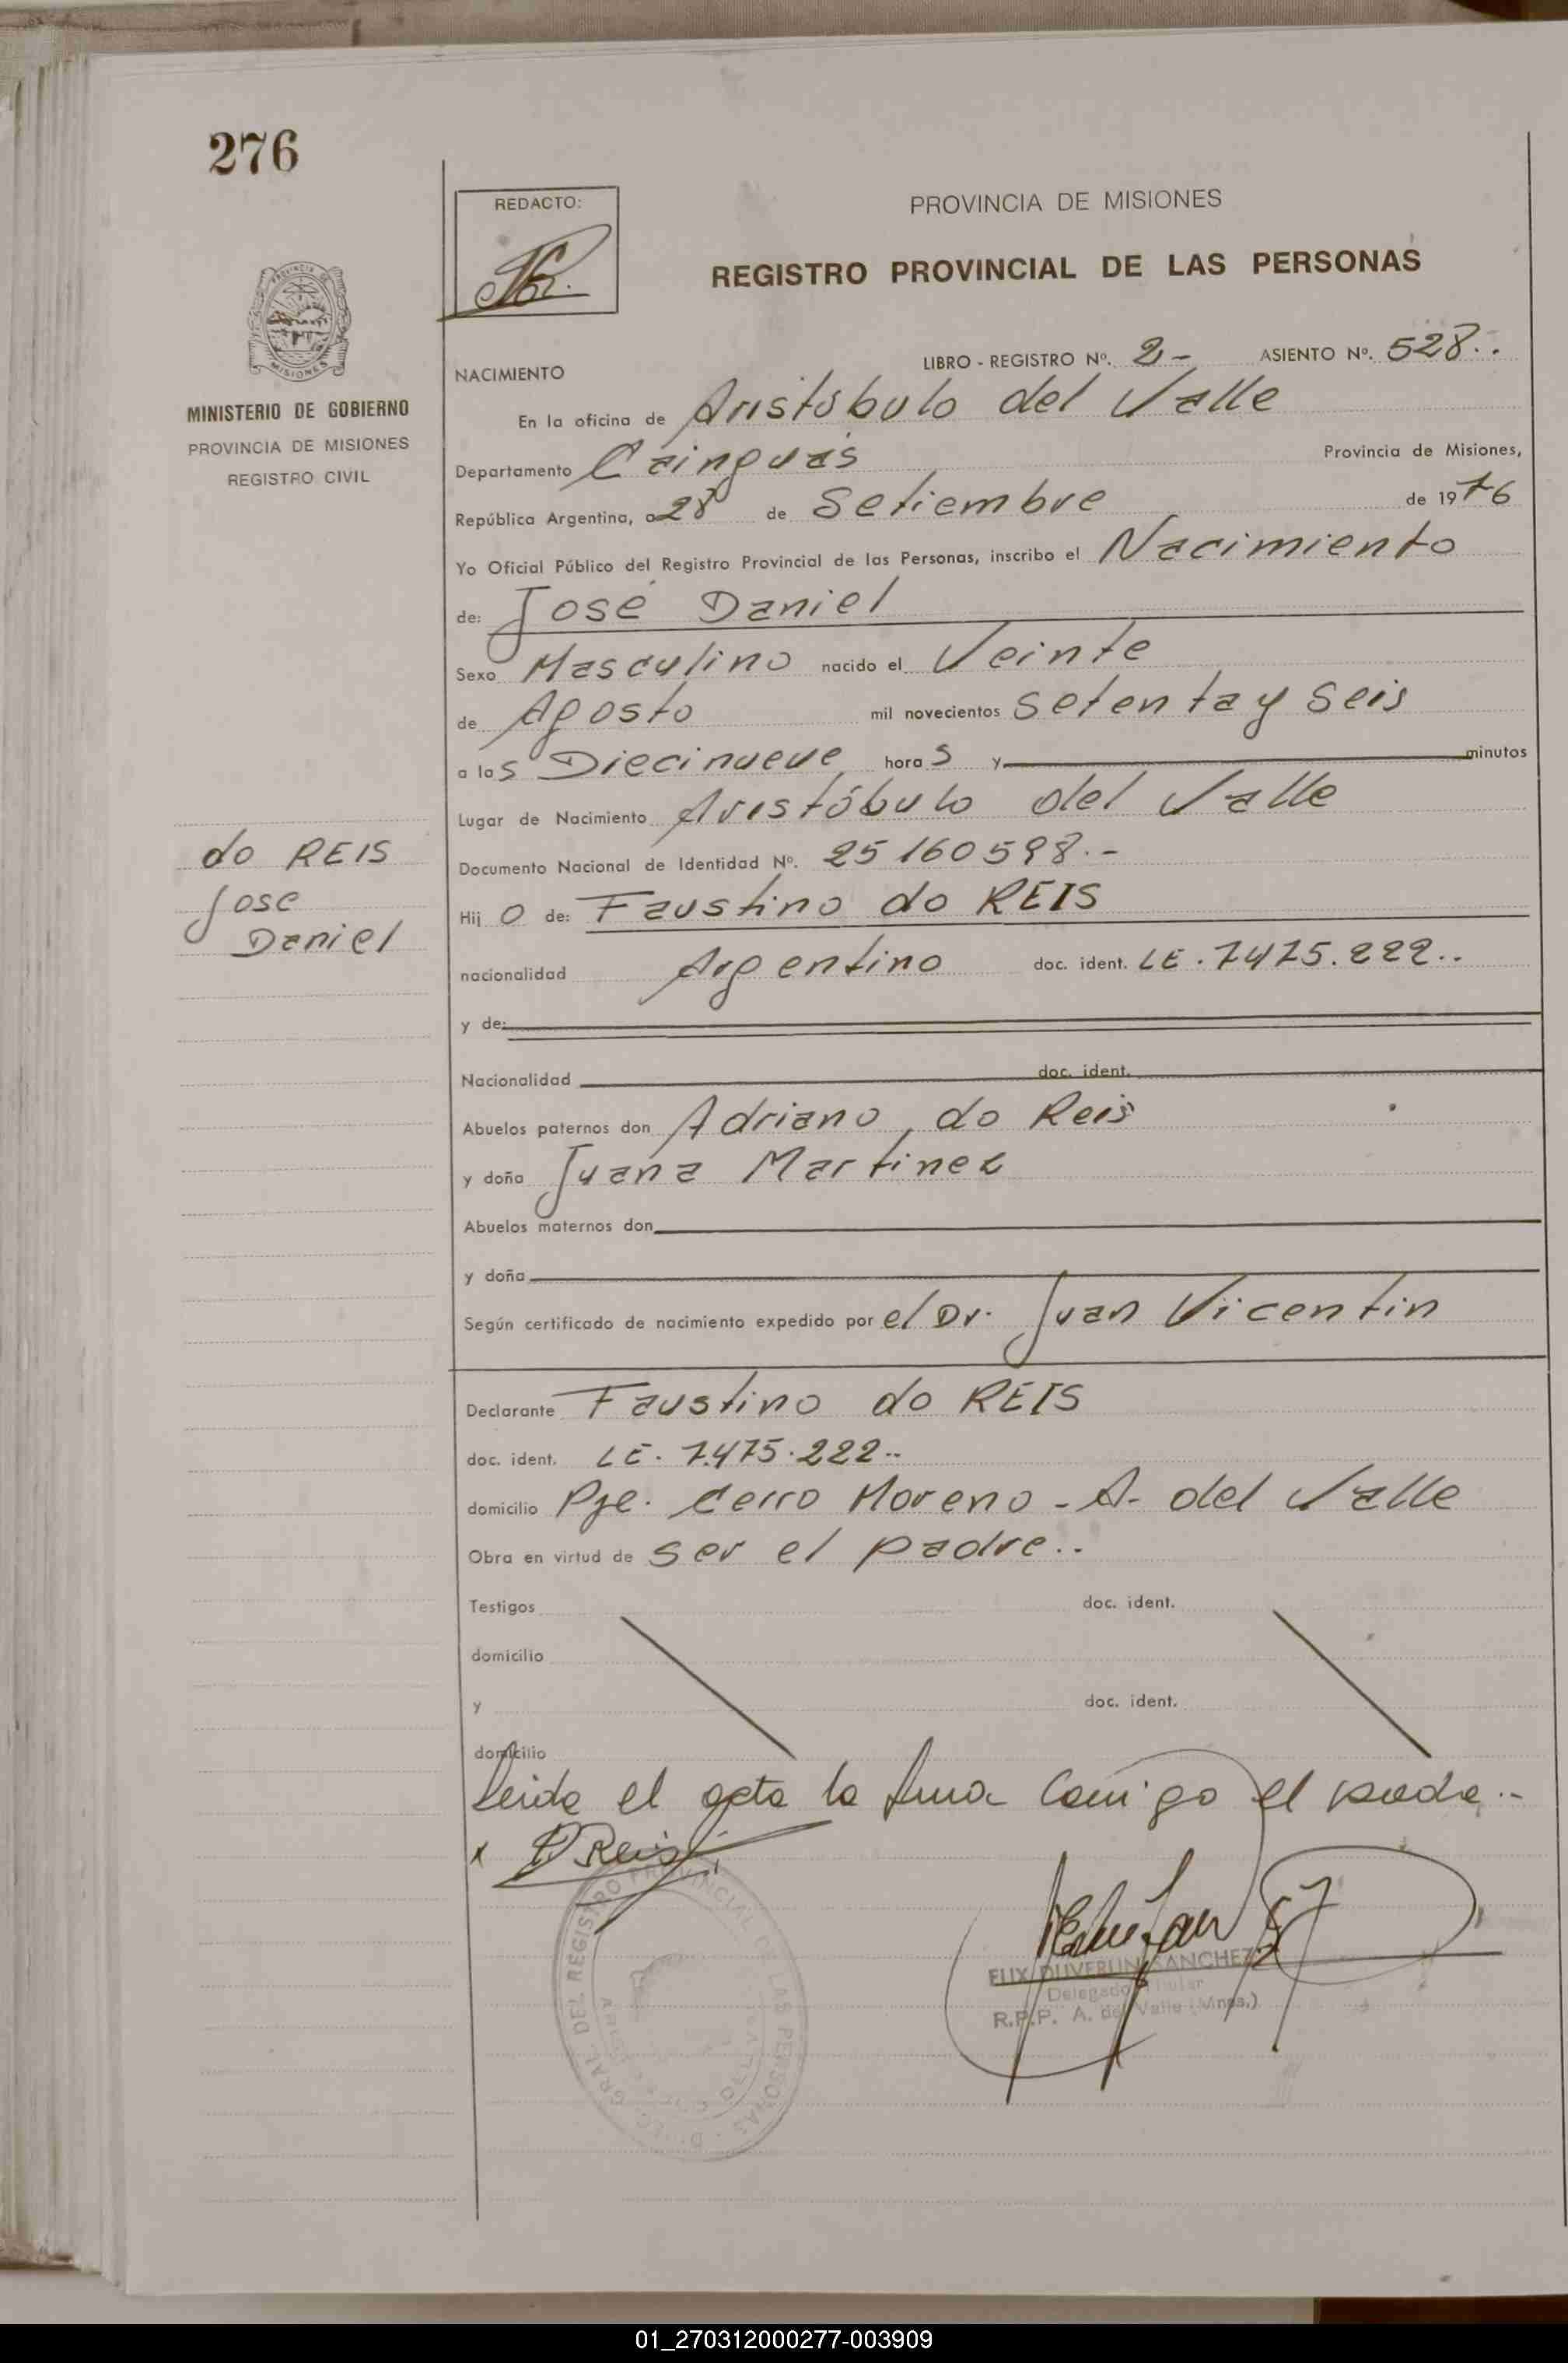 276
REDACTO:
PROVINCIA DE MISIONES
REGISTRO PROVINCIAL DE LAS PERSONAS
LIBRO - REGISTRO Nº. 2 - ASIENTO Nº. 528..
NACIMIENTO
MINISTERIO DE GOBIERNO
PROVINCIA DE MISIONES
REGISTRO CIVIL
En la oficina de Aristóbulo del Valle
Departamento Cainguás Provincia de Misiones,
República Argentina, a 28 de Setiembre de 1976
Yo Oficial Público del Registro Provincial de las Personas, inscribo el Nacimiento
de: José Daniel
Sexo Masculino nacido el Veinte
de Agosto mil novecientos setenta y seis
a las Diecinueve horas y minutos
Lugar de Nacimiento Aristóbulo del Valle
do REIS
Jose
Daniel
Documento Nacional de Identidad Nº. 25160598.-
Hijo de: Faustino do REIS
nacionalidad Argentino doc. ident. LE. 7475.222..
y de:
Nacionalidad doc. ident.
Abuelos paternos don Adriano do Reis
y doña Juana Martinez
Abuelos maternos don
y doña
Según certificado de nacimiento expedido por el Dr. Juan Vicentin
Declarante Faustino do REIS
doc. ident. LE. 7.475.222..
domicilio Pje. Cerro Moreno - A. del Valle
Obra en virtud de ser el padre..
Testigos doc. ident.
domicilio
y doc. ident.
domicilio
Leida el acta la firma conmigo el padre..
x Reis
DEL REGISTRO PROVINCIAL DE LAS PERSONAS
ELIX DUVERLIN SANCHEZ
Delegado Titular
R.P.P. A. del Valle (Mnes.)
01_270312000277-003909